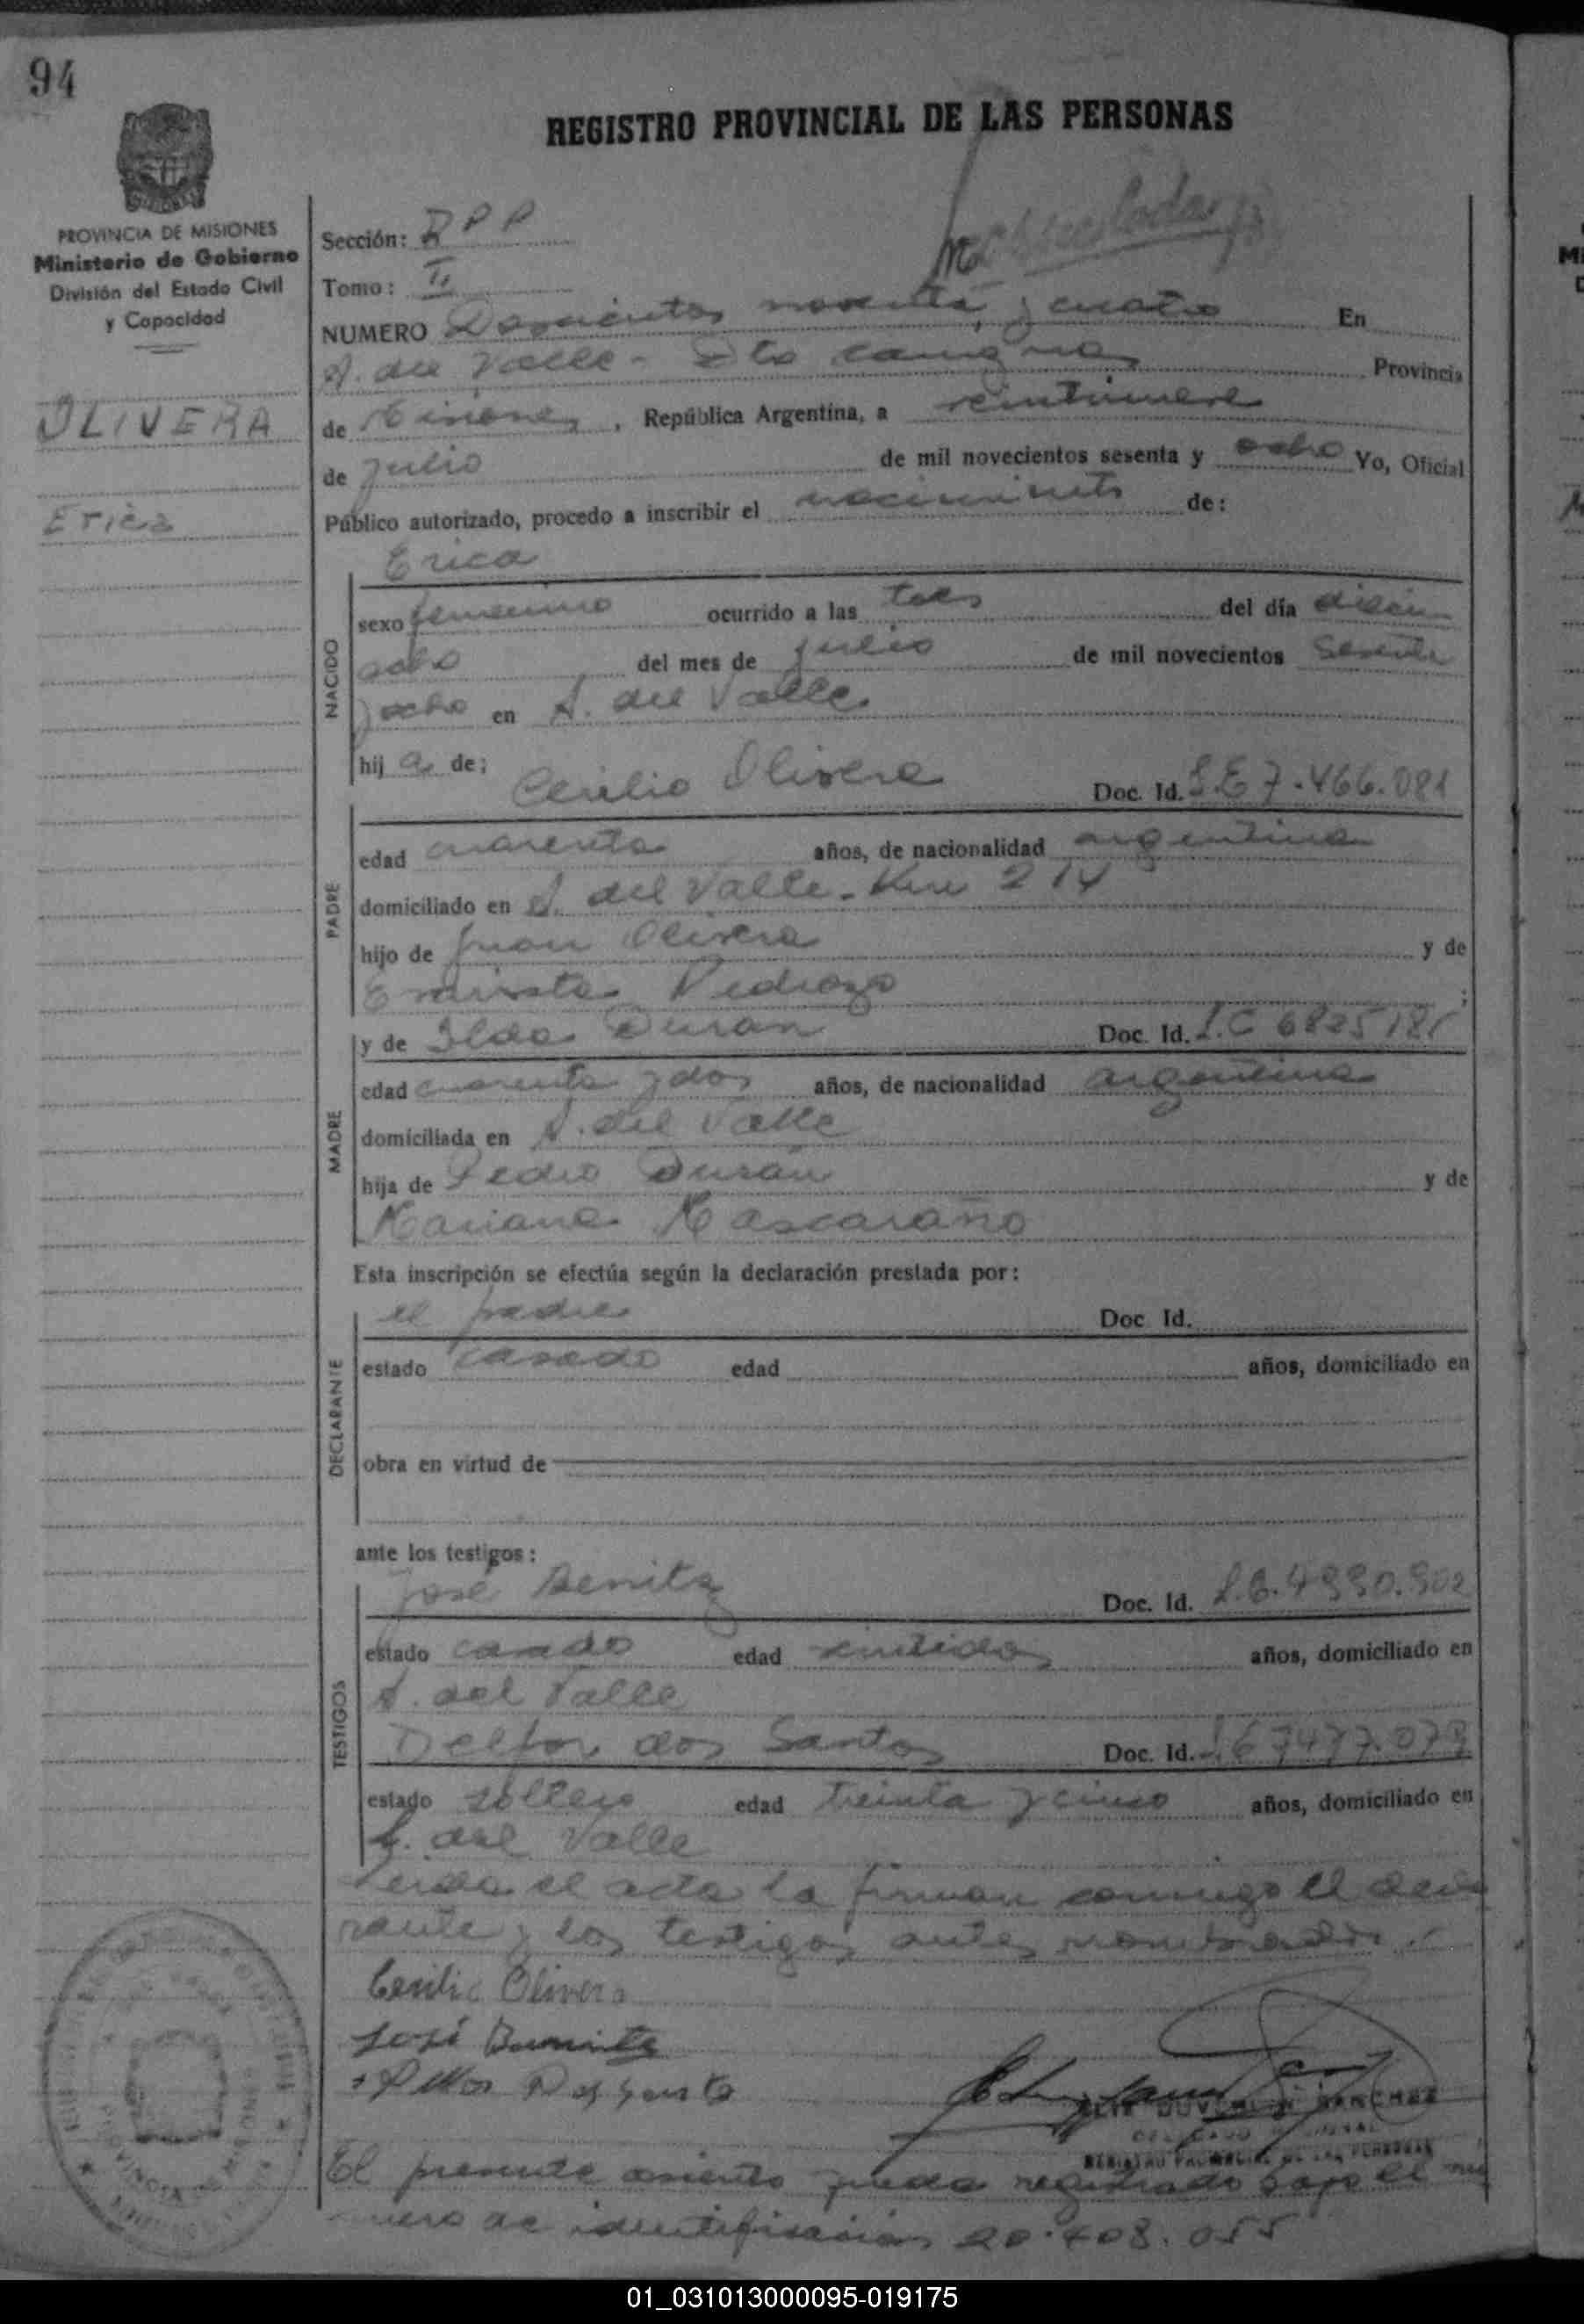 94
REGISTRO PROVINCIAL DE LAS PERSONAS
PROVINCIA DE MISIONES
Ministerio de Gobierno
División del Estado Civil
y Capacidad
OLIVERA
Erica
Sección: RPP
Tomo: II
NUMERO Doscientos noventa y cuatro En
A. del Valle - Dto Cainguas Provincia
de Misiones, República Argentina, a veintinueve
de julio de mil novecientos sesenta y ocho Yo, Oficial
Público autorizado, procedo a inscribir el nacimiento de:
Erica
NACIDO
sexo femenino ocurrido a las tres del día dieci
ocho del mes de julio de mil novecientos sesenta
y ocho en A. del Valle
hij a de; Cecilio Olivera Doc. Id. L.E 7.466.081
PADRE
edad cuarenta años, de nacionalidad argentina
domiciliado en A. del Valle - Km 214
hijo de Juan Olivera y de
Evarista Pedrozo ;
MADRE
y de Ilda Duran Doc. Id. L.C 6825181
edad cuarenta y dos años, de nacionalidad argentina
domiciliada en A. del Valle
hija de Pedro Durán y de
Mariana Mascaraño
Esta inscripción se efectúa según la declaración prestada por:
DECLARANTE
el padre Doc. Id.
estado casado edad años, domiciliado en
obra en virtud de
ante los testigos:
TESTIGOS
José Benitez Doc. Id.
estado casado edad veintidos años, domiciliado en
A. del Valle
Delfor dos Santos Doc. Id.
estado soltero edad treinta y cinco años, domiciliado en
A. del Valle
Leida el acta la firman conmigo el decla
rante y los testigos antes nombrados.
Cecilio Olivera
José Benitez
SANCHEZ
REGISTRO PROVINCIAL DE LAS PERSONAS
El presente asiento queda registrado bajo el nú
mero de identificación 20.408.055
01_031013000095-019175